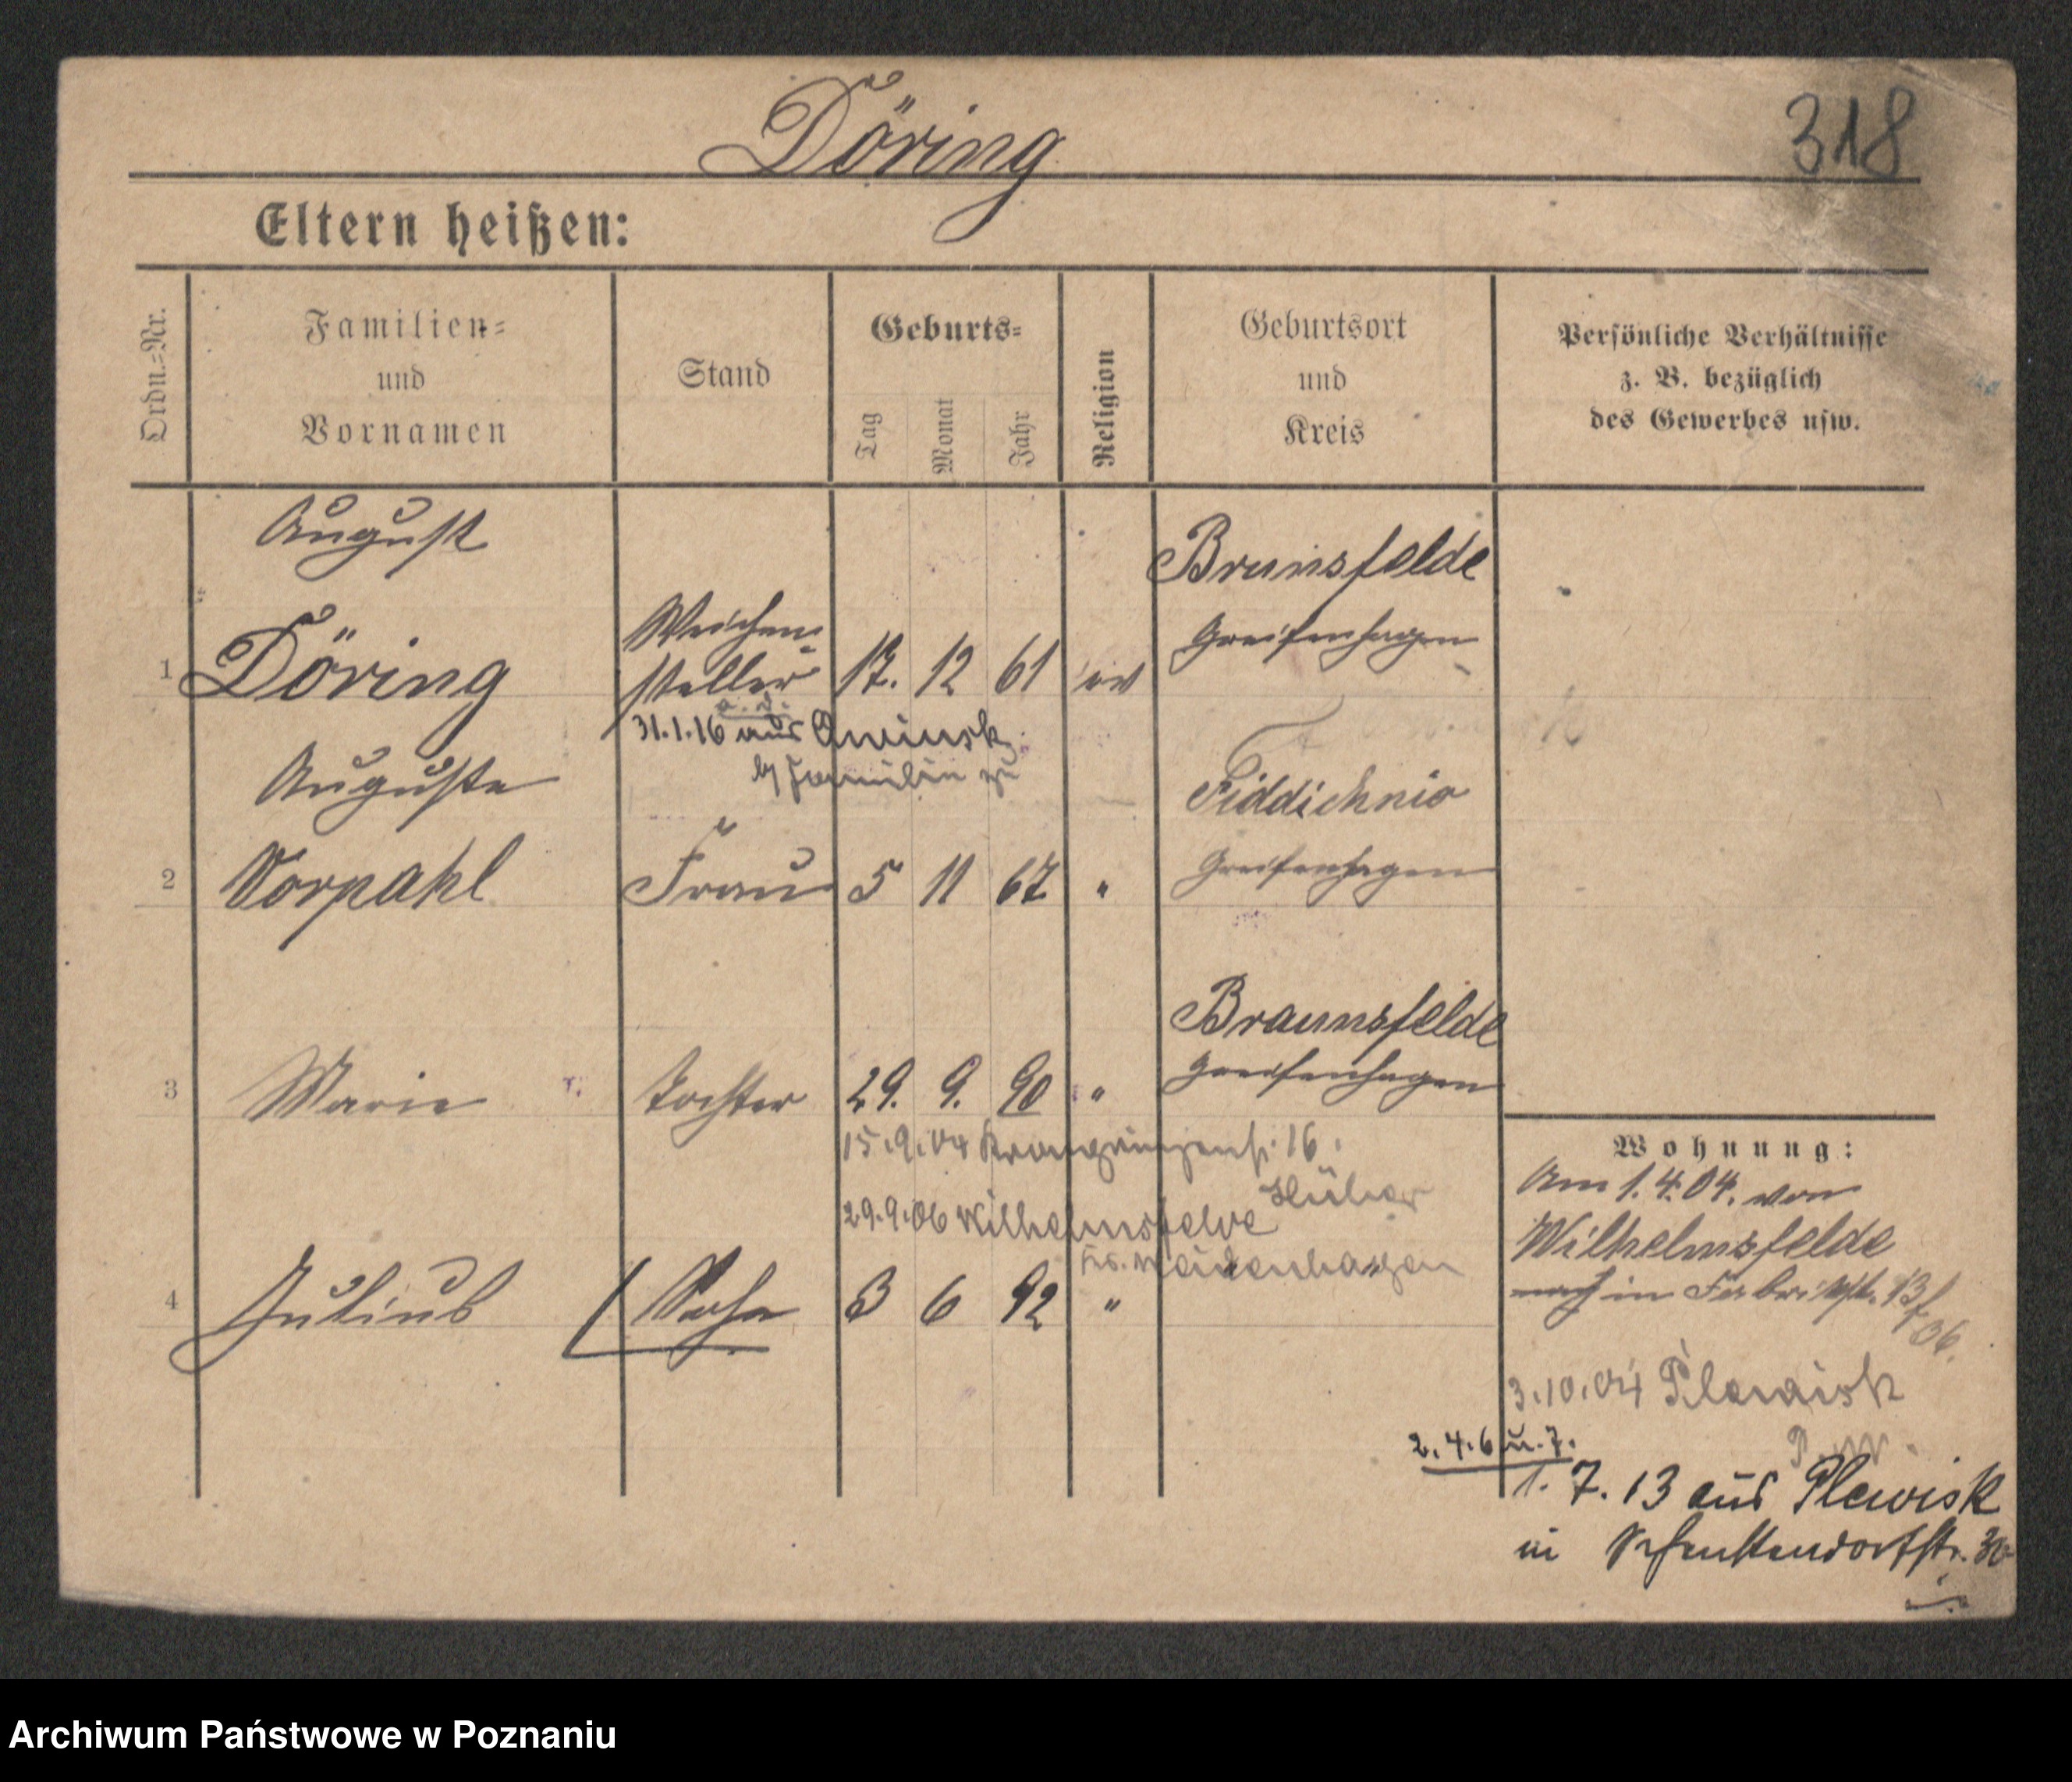 Döring
318
Eltern heißen:
Ordn.-Nr.
Familien-
und
Vornamen
Stand
Geburts-
Tag
Monat
Jahr
Religion
Geburtsort
und
Kreis
Persönliche Verhältnisse
z. B. bezüglich
des Gewerbes usw.
August
1 Döring
Weichen
steller
a. D.
17. 12 61 ev
Brunsfelde
Greifenhagen
31.1.16 aus
Familie zu
Auguste
2 Vorpahl Frau 5 11 67 "
Fiddichnio
Greifenhagen
3 Marie Tochter 29. 9. 90 "
Braunsfelde
Greifenhagen
15.9.04 16.
29.9.06 Wilhelmsfelde
4 Julius Sohn 3 6 92 "
Wohnung:
Am 1.4.04. von
Wilhelmsfelde
nach in Fabrikstr. 13
36.
3.10.04 Plewisk
P. W.
2. 4. 6 u. 7.
1. 7. 13 aus Plewisk
in Schenkendorfstr. 30
Archiwum Państwowe w Poznaniu